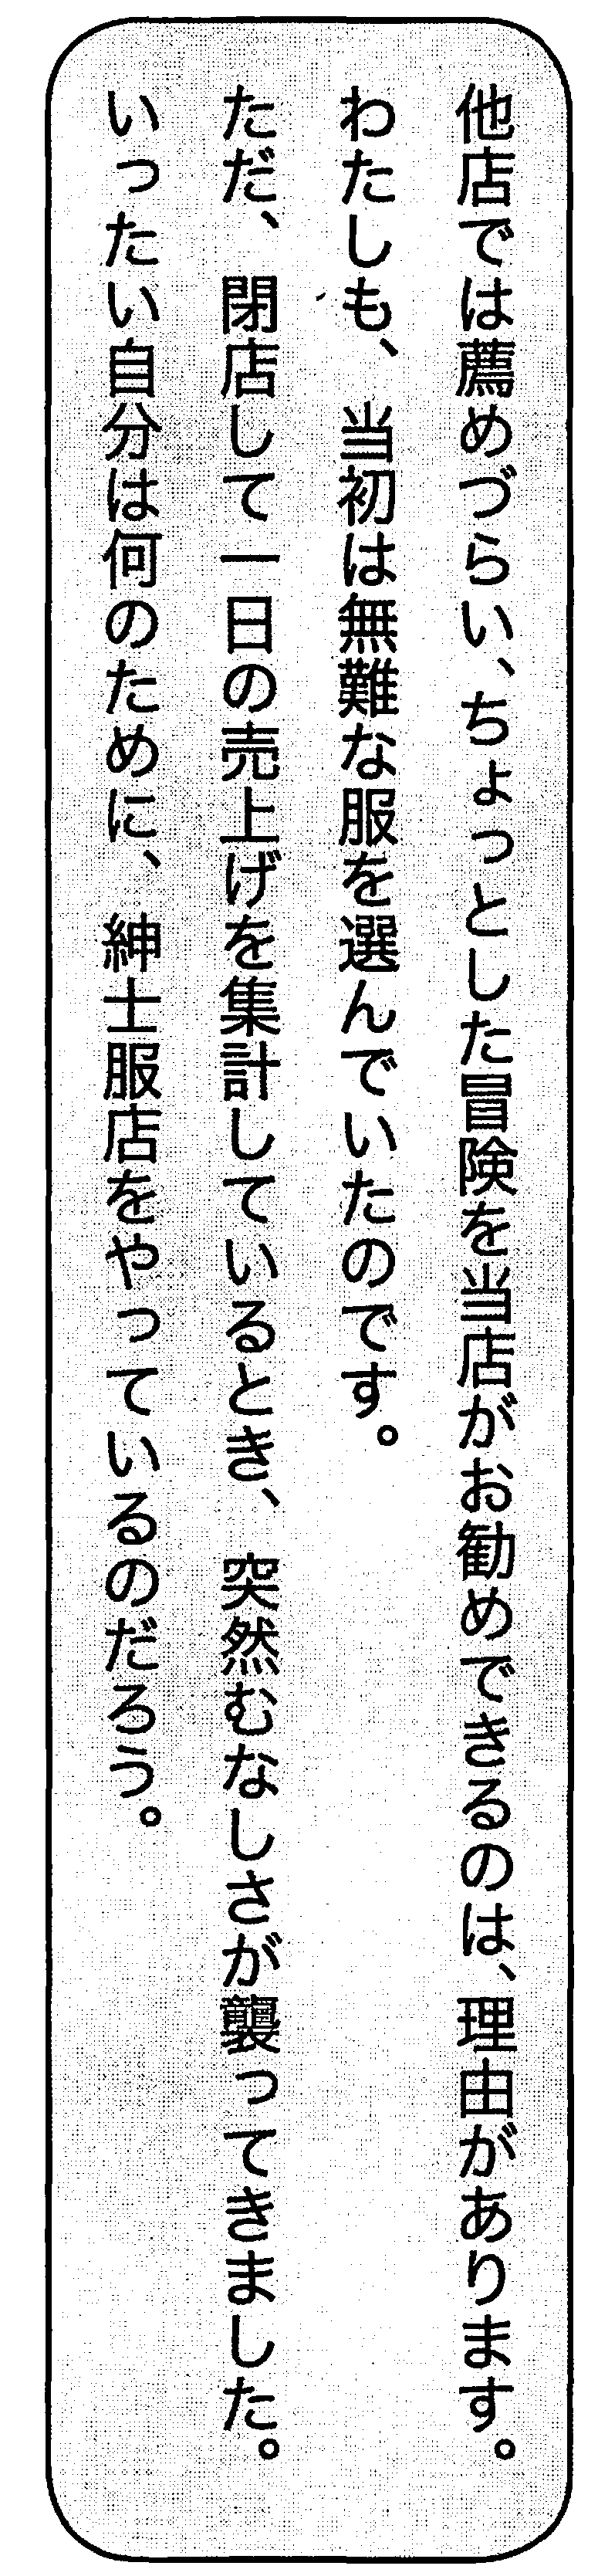 他店では薦めづらい、ちょっとした冒険を当店がお勧めできるのは、理由があります。
わたしも、当初は無難な服を選んでいたのです。
ただ、閉店して一日の売上げを集計しているとき、突然むなしさが襲ってきました。
いったい自分は何のために、紳士服店をやっているのだろう。